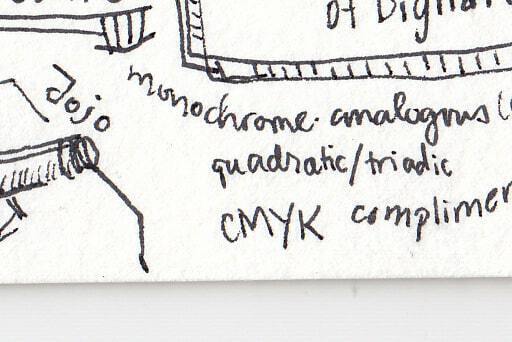 of Digital
dojo
monochrome. analogous (
quadratic/triadic
CMYK complimen